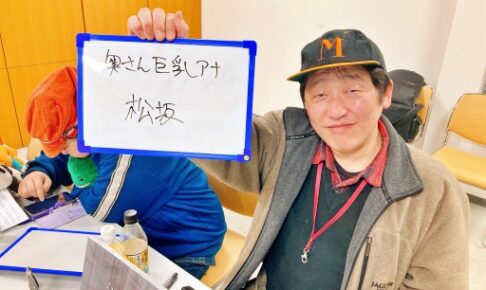 奥さん巨乳アナ
松坂
M